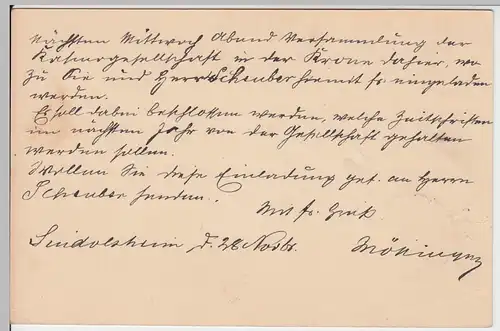 Nächsten Mittwoch Abend Versammlung der
Kasinogesellschaft in der Krone dahier, wo
zu Sie und Herr Scheuber hiemit fr. eingeladen
werden.
Es soll dabei beschlossen werden, welche Zeitschriften
im nächsten Jahr von der Gesellschaft gehalten
werden sollen.
Wollen Sie diese Einladung gef. an Herrn
Scheuber senden.
Mit fr. Gruß
Sindolsheim d. 28 Novbr.